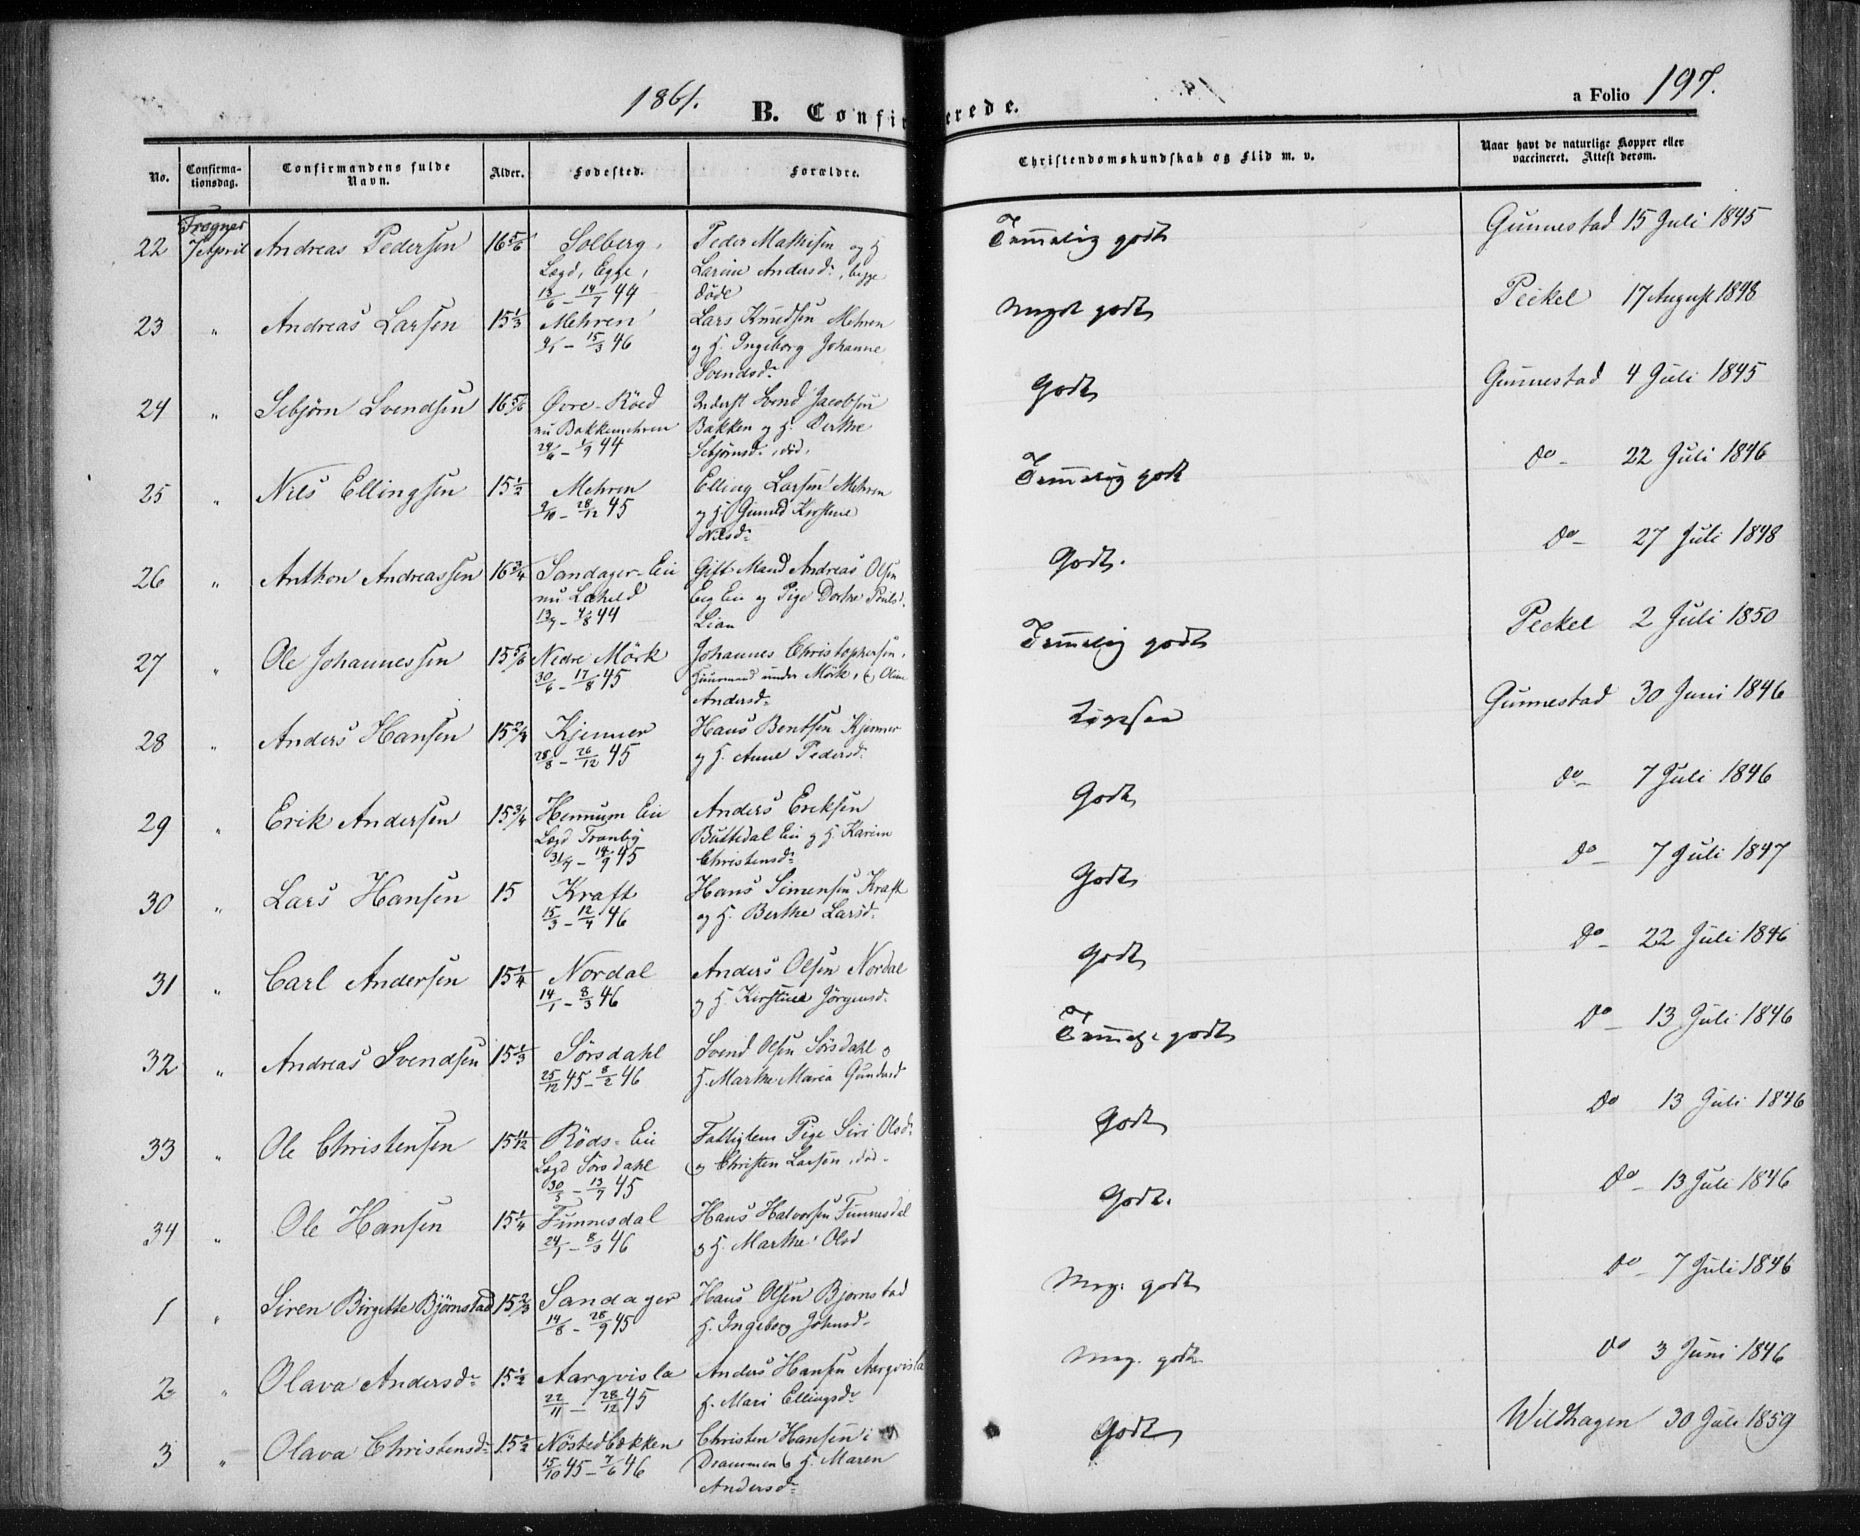 1861.
B. Confirmerede.
a Folio 197.
No.
Confirma-
tionsdag.
Confirmandens fulde
Navn.
Alder.
Fødested.
Forældre.
Christendomskundskab og Flid m. v.
Naar havt de naturlige Kopper eller
vaccineret. Attest derom.
Frogner
22 7 April Andreas Pedersen 16 5/6 Solberg, Peder Mathisen og H Temmelig godt Gunnestad 15 Juli 1845
Lægd, Egge, Larine Andersd:, begge
13/6 - 14/7 44 døde
23 " Andreas Larsen 15 1/3 Mehren Lars Knudsen Mehren Meget godt Peckel 17 August 1848
9/1 - 15/3 46 og H. Ingeborg Johanne
Svendsd:
24 " Sebjørn Svendsen 16 5/6 Øvre-Röed Inderst Svend Jacobsen Godt Gunnestad 4 Juli 1845
nu Bakkemehren Bakken og H. Berthe
24/6 - 1/9 44 Sebjørnsd:, død.
25 " Nils Ellingsen 15 1/2 Mehren Elling Larsen Mehren Temmelig godt do - 22 Juli 1846
9/10 - 28/12 45 og H. Gunild Kirstine
Nilsd:
26 " Anthon Andreassen 16 3/4 Sandager-Eie Gift Mand Andreas Olsen Godt. do - 27 Juli 1848
nu Laheld Eeg Eie og Pige Dorthe Pouls:
13/7 - 4/8 44 Lian
27 " Ole Johannessen 15 5/6 Nedre Mörk Johannes Christophersen, Temmelig godt Peckel 2 Juli 1850
30/6 - 17/8 45 Huusmand under Mörk, & Oline
Andersd:
28 " Anders Hansen 15 2/3 Kjenner Hans Bentsen Kjenner Gunnestad 30 Juni 1846
28/8 - 26/12 45 og H. Anne Pedersd:
29 " Erik Andersen 15 3/4 Hennum Eie Anders Eriksen Godt do - 7 Juli 1846
Lægd Tranby Buttedal Eie og H Karine
31/7 - 14/9 45 Christensd:
30 " Lars Hansen 15 Kraft Hans Simensen Kraft Godt do - 7 Juli 1847
15/3 - 12/4 46 og H. Berthe Larsd:
31 " Carl Andersen 15 1/4 Nordal Anders Olsen Nordal Godt do - 22 Juli 1846
14/1 - 8/3 46 og H. Kirstine Jörgensd.
32 " Andreas Svendsen 15 1/3 Sörsdahl Svend Olsen Sörsdahl o Temmelig godt do - 13 Juli 1846
25/12 45 - 8/2 46 H. Marthe Maria Gundersd
33 " Ole Christensen 15 11/12 Röds-Eie Fattiglem Pige Siri Olsd: Godt do 13 Juli 1846
Lægd Sörsdahl og Christen Larsen, död-
30/5 - 13/7 45
34 " Ole Hansen 15 1/4 Tinnesdal Hans Halvorsen Tinnesdal Godt. do - 13 Juli 1846
24/1 - 8/3 46 o H. Marthe Olsd
1 " Siren Birgitte Björnstad 15 2/3 Sandager Hans Olsen Bjornstad Meg: godt do - 7 Juli 1846
14/8 - 28/9 45 H. Ingeborg Johnsd-
2 " Olava Andersd: 15 1/2 Aarqvisla Anders Hansen Aarqvisla Meg. godt do 3 Juni 1846
22/11 - 28/12 45 H. Mari Ellingsd:
3 " Olava Christensd: 15 1/2 Nöstedbækken Christen Hansen i Godt Wildhagen 30 Juli 1859
15/10 45 - 7/6 46 Drammen & H. Maren
Andersd: